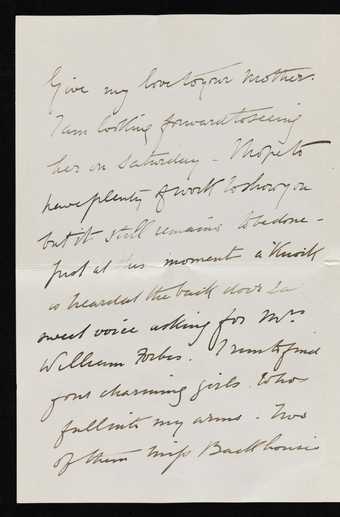 Give my love to your Mother.
I am looking forward to seeing
her on Saturday - I hope to
have plenty of work to show you
but it still remains to be done -
Just at this moment a Knock
is heard at the back door & a
sweet voice asking for Mrs
William Forbes. I run & find
four charming girls. Who
fall into my arms. Two
of them Miss Backhouse